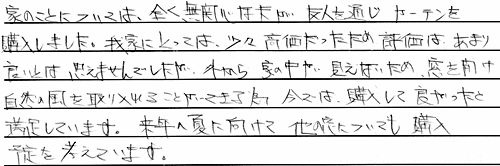 家のことについては、全く無関心なたが、友人を通じカーテンを
購入しました。我家にとっては、少々高価だったため評価は、あまり
良いとは思えませんでしたが、外から家の中が見えないため、窓を開け
自然の風を取り入れることができる為今では、購入して良かったと
満足しています。来年の夏に向けて他の窓についても購入
予定を考えています。